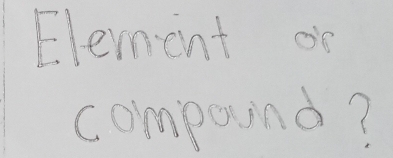 Element or
compound?